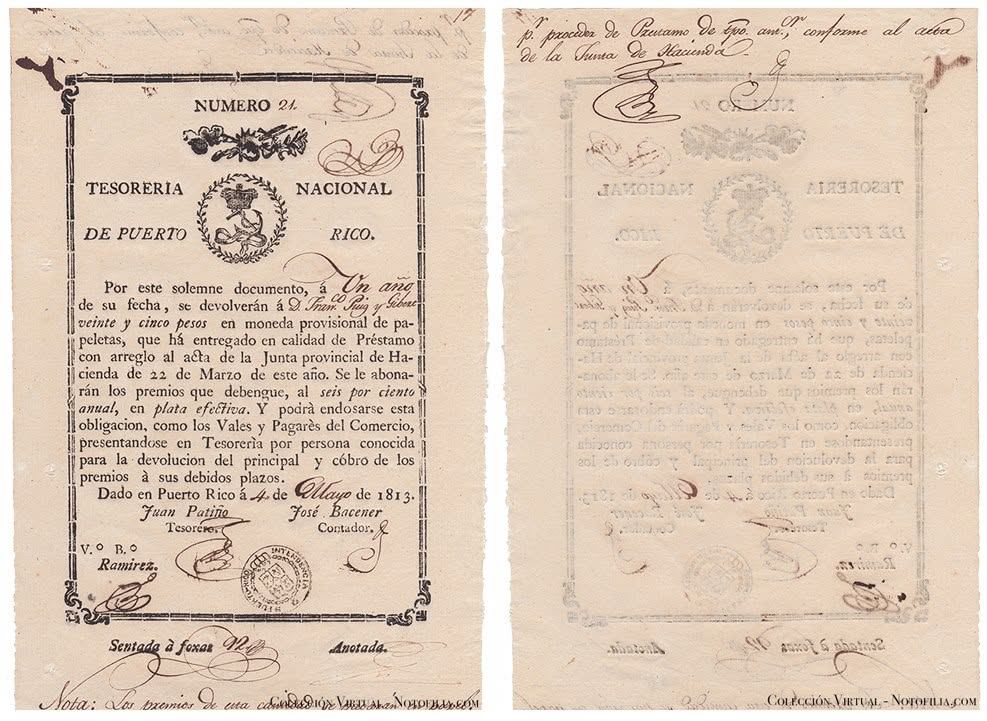 17
NUMERO 21.
TESORERIA NACIONAL
DE PUERTO RICO.
Por este solemne documento, á Un año
de su fecha, se devolverán á D. Fran.co Puig y Gibert
veinte y cinco pesos en moneda provisional de pa-
peletas, que há entregado en calidad de Préstamo
con arreglo al acta de la Junta provincial de Ha-
cienda de 22 de Marzo de este año. Se le abona-
rán los premios que debengue, al seis por ciento
anual, en plata efectiva. Y podrá endosarse esta
obligacion, como los Vales y Pagarès del Comercio,
presentandose en Tesorería por persona conocida
para la devolucion del principal y cóbro de los
premios à sus debidos plazos.
Dado en Puerto Rico á 4 de Mayo de 1813.
Juan Patiño José Bacener
Tesorero. Contador.
V.º B.º
Ramirez.
INTENDENCIA
Sentada à foxas Anotada.
Nota: Los premios de esta
COLECCIÓN VIRTUAL - NOTOFILIA.COM
p.r proceder de Prestamo de tpo. ant.or, conforme al acta
de la Junta de Hacienda
COLECCIÓN VIRTUAL - NOTOFILIA.COM